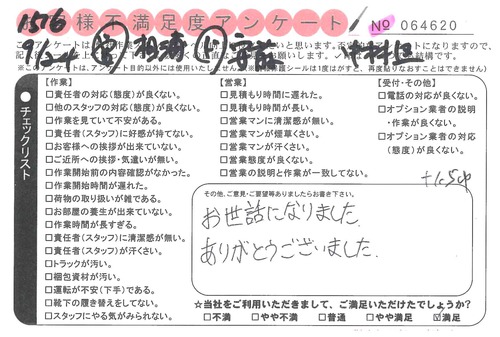 1576
様不満足度アンケート
No 064620
9/24
【作業】
□責任者の対応(態度)が良くない。
□他のスタッフの対応(態度)が良くない。
□作業を見ていて不安がある。
□責任者(スタッフ)に好感が持てない。
□お客様への挨拶が出来ていない。
□ご近所への挨拶・気遣いが無い。
□作業開始前の内容確認がなかった。
□作業開始時間が遅れた。
□荷物の取り扱いが雑である。
□お部屋の養生が出来ていない。
□作業時間が長すぎる。
□責任者(スタッフ)に清潔感が無い。
□責任者(スタッフ)が汗くさい。
□トラックが汚い。
□梱包資材が汚い。
□運転が不安(下手)である。
□靴下の履き替えをしてない。
□スタッフにやる気がみられない。
【営業】
□見積もり時間に遅れた。
□見積もり時間が長い。
□営業マンに清潔感が無い。
□営業マンが煙草くさい。
□営業マンが汗くさい。
□営業態度が良くない。
□営業の説明と作業が一致してない。
【受付・その他】
□電話の対応が良くない。
□オプション業者の説明
・作業が良くない。
□オプション業者の対応
(態度)が良くない。
●チェックリスト
その他、ご意見・ご要望等ありましたらお書き下さい。
お世話になりました。
ありがとうございました。
☆当社をご利用いただきまして、ご満足いただけたでしょうか?
□不満 □やや不満 □普通 □やや満足 ☑満足